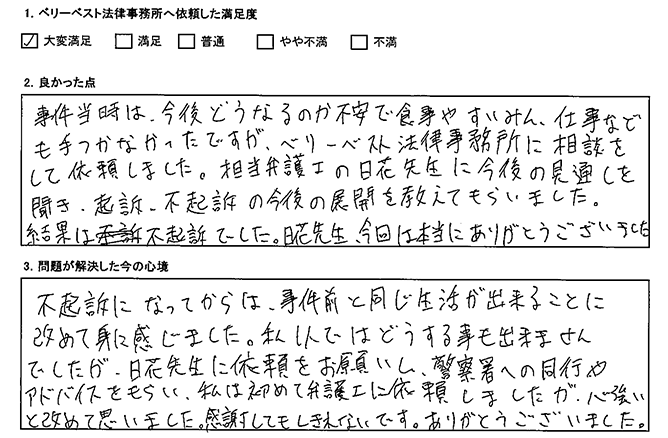 1. ベリーベスト法律事務所へ依頼した満足度
☑ 大変満足 □ 満足 □ 普通 □ やや不満 □ 不満
2. 良かった点
事件当時は、今後どうなるのか不安で食事やすいみん、仕事など
も手つかなかったですが、ベリーベスト法律事務所に相談を
して依頼しました。相当弁護士の日花先生に今後の見通しを
聞き、起訴、不起訴の今後の展開を教えてもらいました。
結果は不起訴でした。日花先生、今回は本当にありがとうございました
3. 問題が解決した今の心境
不起訴になってからは、事件前と同じ生活が出来ることに
改めて身に感じました。私1人ではどうする事も出来ません
でしたが、日花先生に依頼をお願いし、警察署への同行や
アドバイスをもらい、私は初めて弁護士に依頼しましたが、心強い
と改めて思いました。感謝してもしきれないです。ありがとうございました。